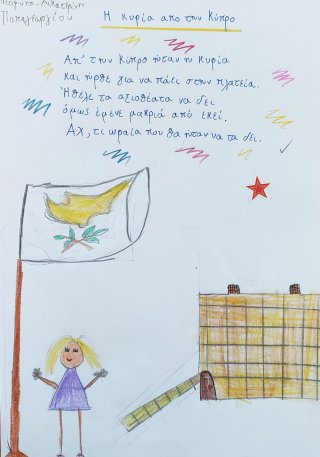 Παπαγεωργίου
Η κυρία απο την Κύπρο
Απ' την Κύπρο ήταν η κυρία
και ήρθε για να πάει στην πλατεία.
Ήθελε τα αξιοθέατα να δει
όμως έμενε μακριά από εκεί.
Αχ, τι ωραία που θα ήταν να τα δει.